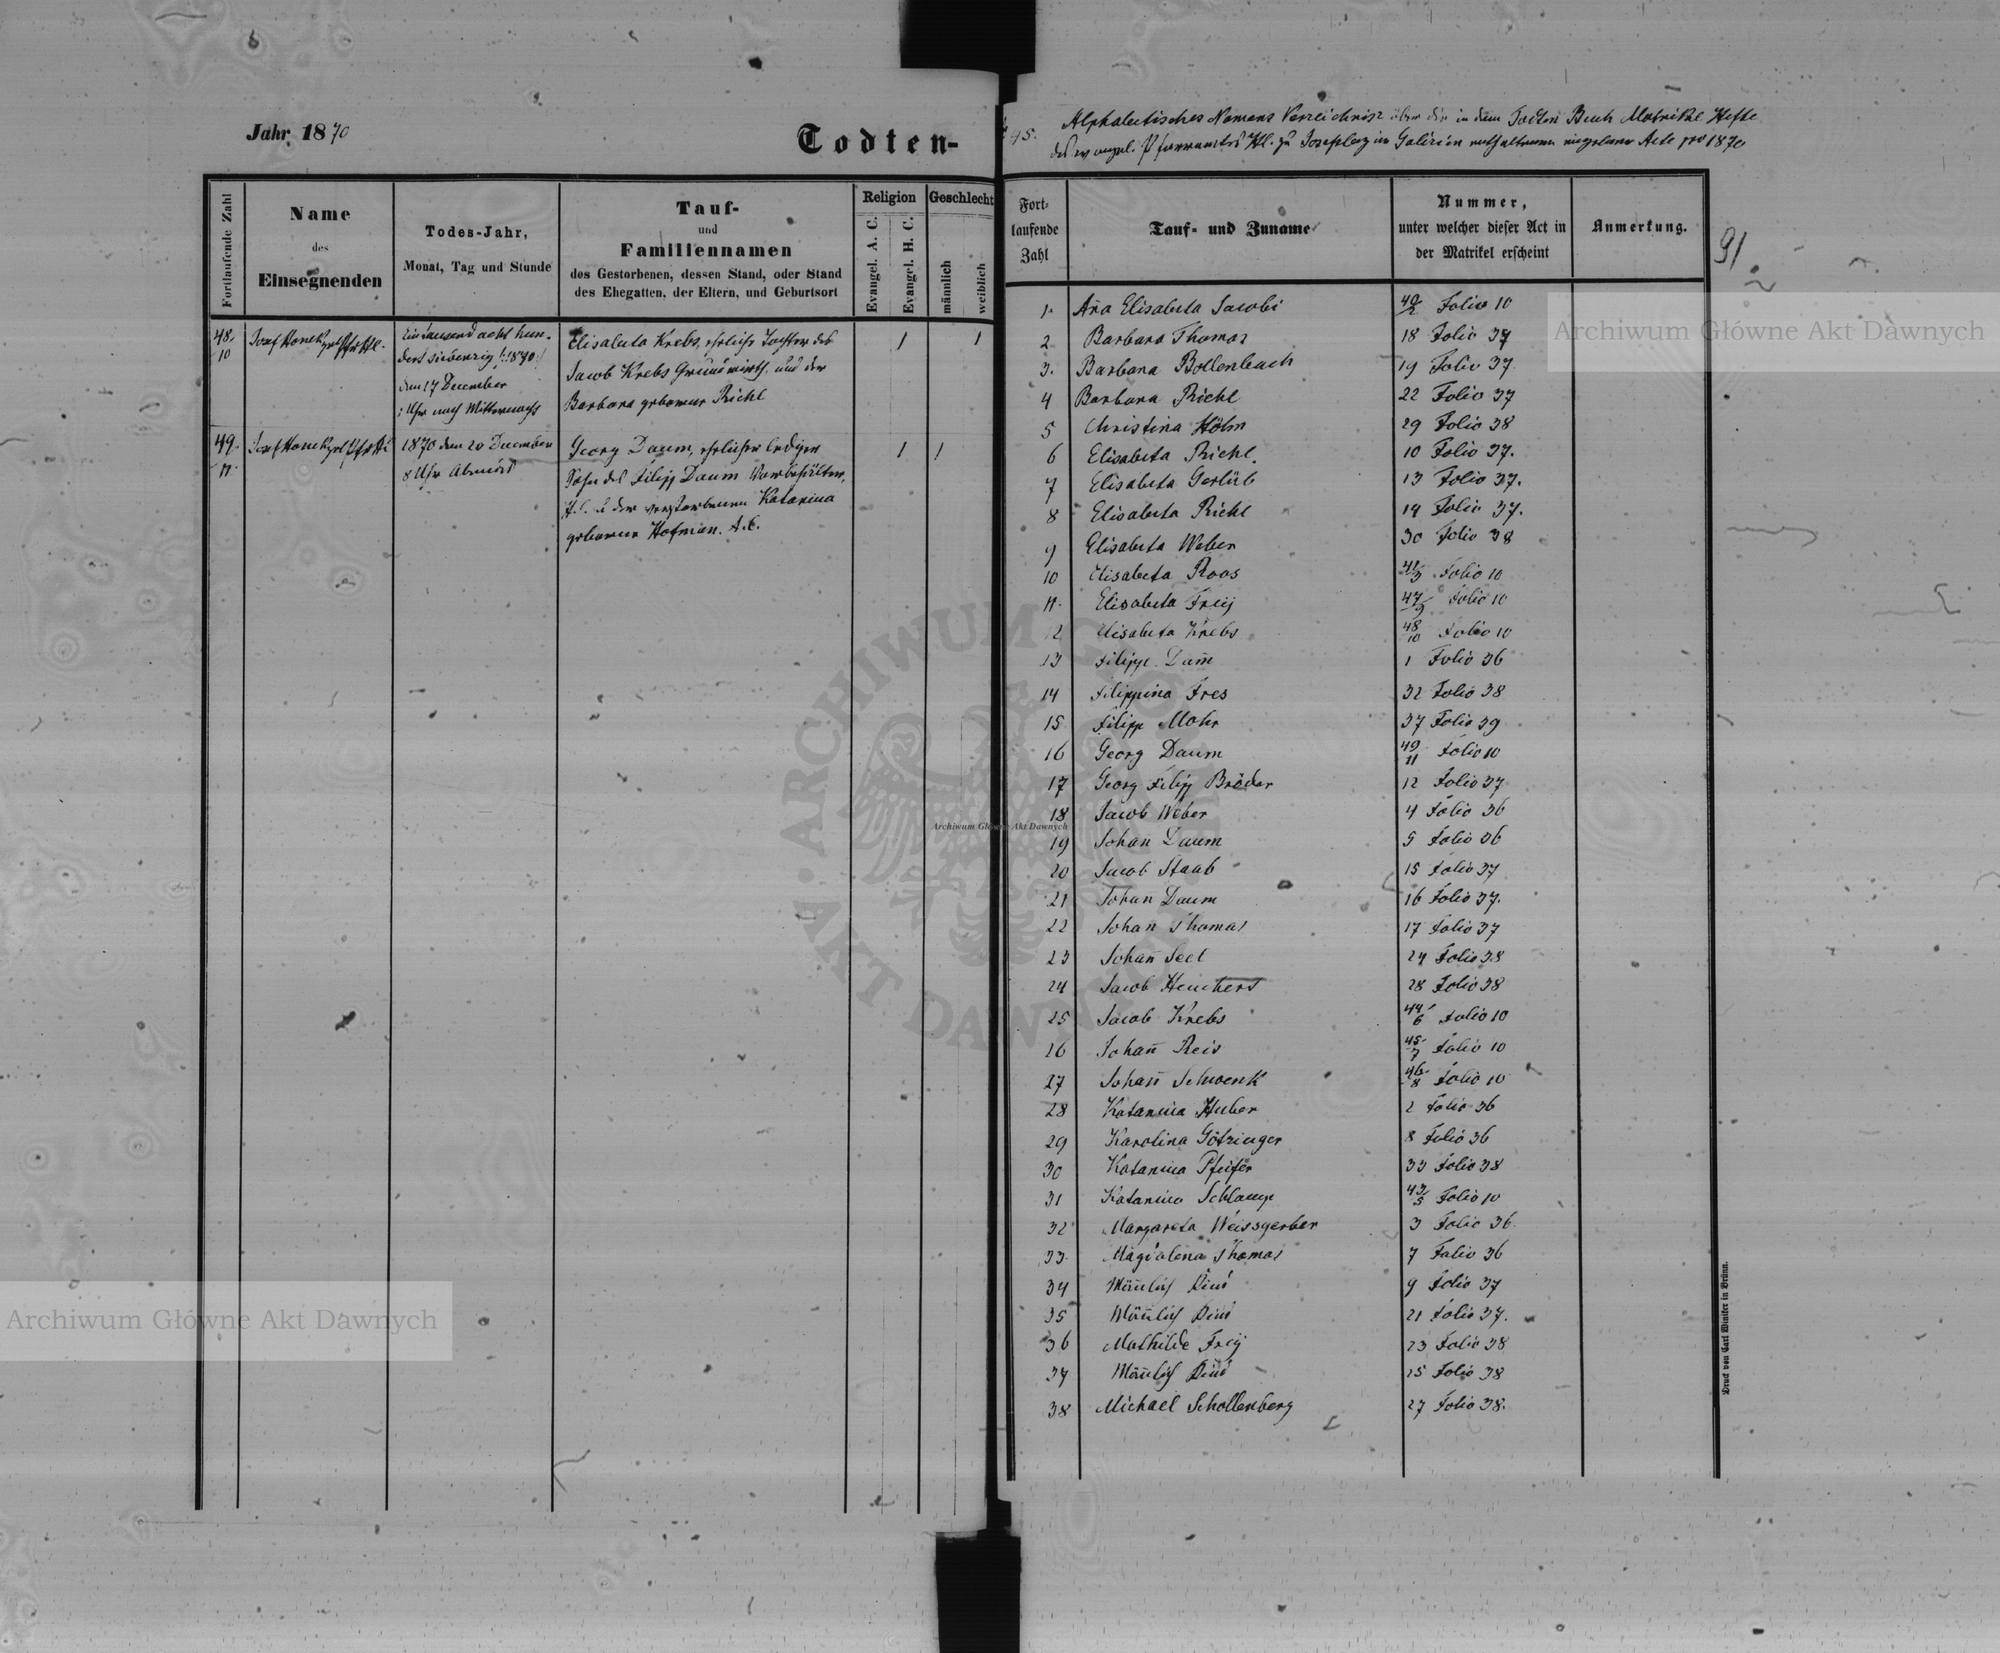 Jahr 1870
Todten-
Fortlaufende Zahl
Name
des
Einsegnenden
Todes-Jahr,
Monat, Tag und Stunde
Tauf-
und
Familiennamen
des Gestorbenen, dessen Stand, oder Stand
des Ehegatten, der Eltern, und Geburtsort
Religion
Evangel. A. C.
Evangel. H. C.
Geschlecht
männlich
weiblich
48.
10
Josef Honek
Eintausend acht hun-
dert siebenzig /:1870:/
den 17 December
1 Uhr nach Mitternacht
Elisabeta Krebs, eheliche Tochter des
Jacob Krebs Grundwirth, und der
Barbara geborene Riehl
1
1
49.
11
Josef Honek
1870 den 20 December
8 Uhr Abends
Georg Daum, ehelicher lediger
Sohn des Filipp Daum
der verstorbenen Katarina
geborene Hofman. A.C.
1
1
45.
Alphabetisches Namens Verzeichniss über die in dem Todten Buch Matrikel Hefte
des evangel. Pfarramtes H.C. zu Josefsberg in Galizien enthaltenen Acte pro 1870
91
Fort-
laufende
Zahl
Tauf- und Zuname
Nummer,
unter welcher dieser Act in
der Matrikel erscheint
Anmerkung.
1. Aña Elisabeta Jacobi 40/2 Folio 10
2 Barbara Thomas 18 Folio 37
3. Barbara Bollenbach 19 Folio 37
4 Barbara Riehl 22 Folio 37
5 Christina Hölm 29 Folio 38
6 Elisabeta Riehl 10 Folio 37.
7 Elisabeta Gerlüb 13 Folio 37.
8 Elisabeta Riehl 14 Folio 37.
9 Elisabeta Weber 30 Folio 38
10 Elisabeta Roos 41/3 Folio 10
11. Elisabeta Freÿ 47/9 Folio 10
12 Elisabeta Krebs 48/10 Folio 10
13 Filipp Dam̄ 1 Folio 36
14 Filippina Fres 32 Folio 38
15 Filipp Mohr 37 Folio 39
16 Georg Daum 49/11 Folio 10
17 Georg Filipp Bröder 12 Folio 37
18 Jacob Weber 4 Folio 36
19 Johan̄ Daum 5 Folio 36
20 Jacob Staab 15 Folio 37
21 Johan Daum 16 Folio 37.
22 Johan̄ Thomas 17 Folio 37
23 Johan̄ Seel 24 Folio 38
24 Jacob 28 Folio 38
25 Jacob Krebs 44/6 Folio 10
26 Johan̄ Reis 45/7 Folio 10
27 Johan̄ Schwenk 46/8 Folio 10
28 Katarina Huber 2 Folio 36
29 Karolina Götzinger 8 Folio 36
30 Katarina Pfeifer 33 Folio 38
31 Katarina Schlamp 43/5 Folio 10
32 Margareta Weissgerber 3 Folio 36
33 Magdalena Thomas 7 Folio 36
34 Män̄lich Kind 9 Folio 37
35 Män̄lich Kind 21 Folio 37.
36 Mathilde Freÿ 23 Folio 38
37 Män̄lich Kind 25 Folio 38
38 Michael Schollenberg 27 Folio 38.
Druck von Carl Winiker in Brünn.
Archiwum Główne Akt Dawnych
Archiwum Główne Akt Dawnych
Archiwum Główne Akt Dawnych